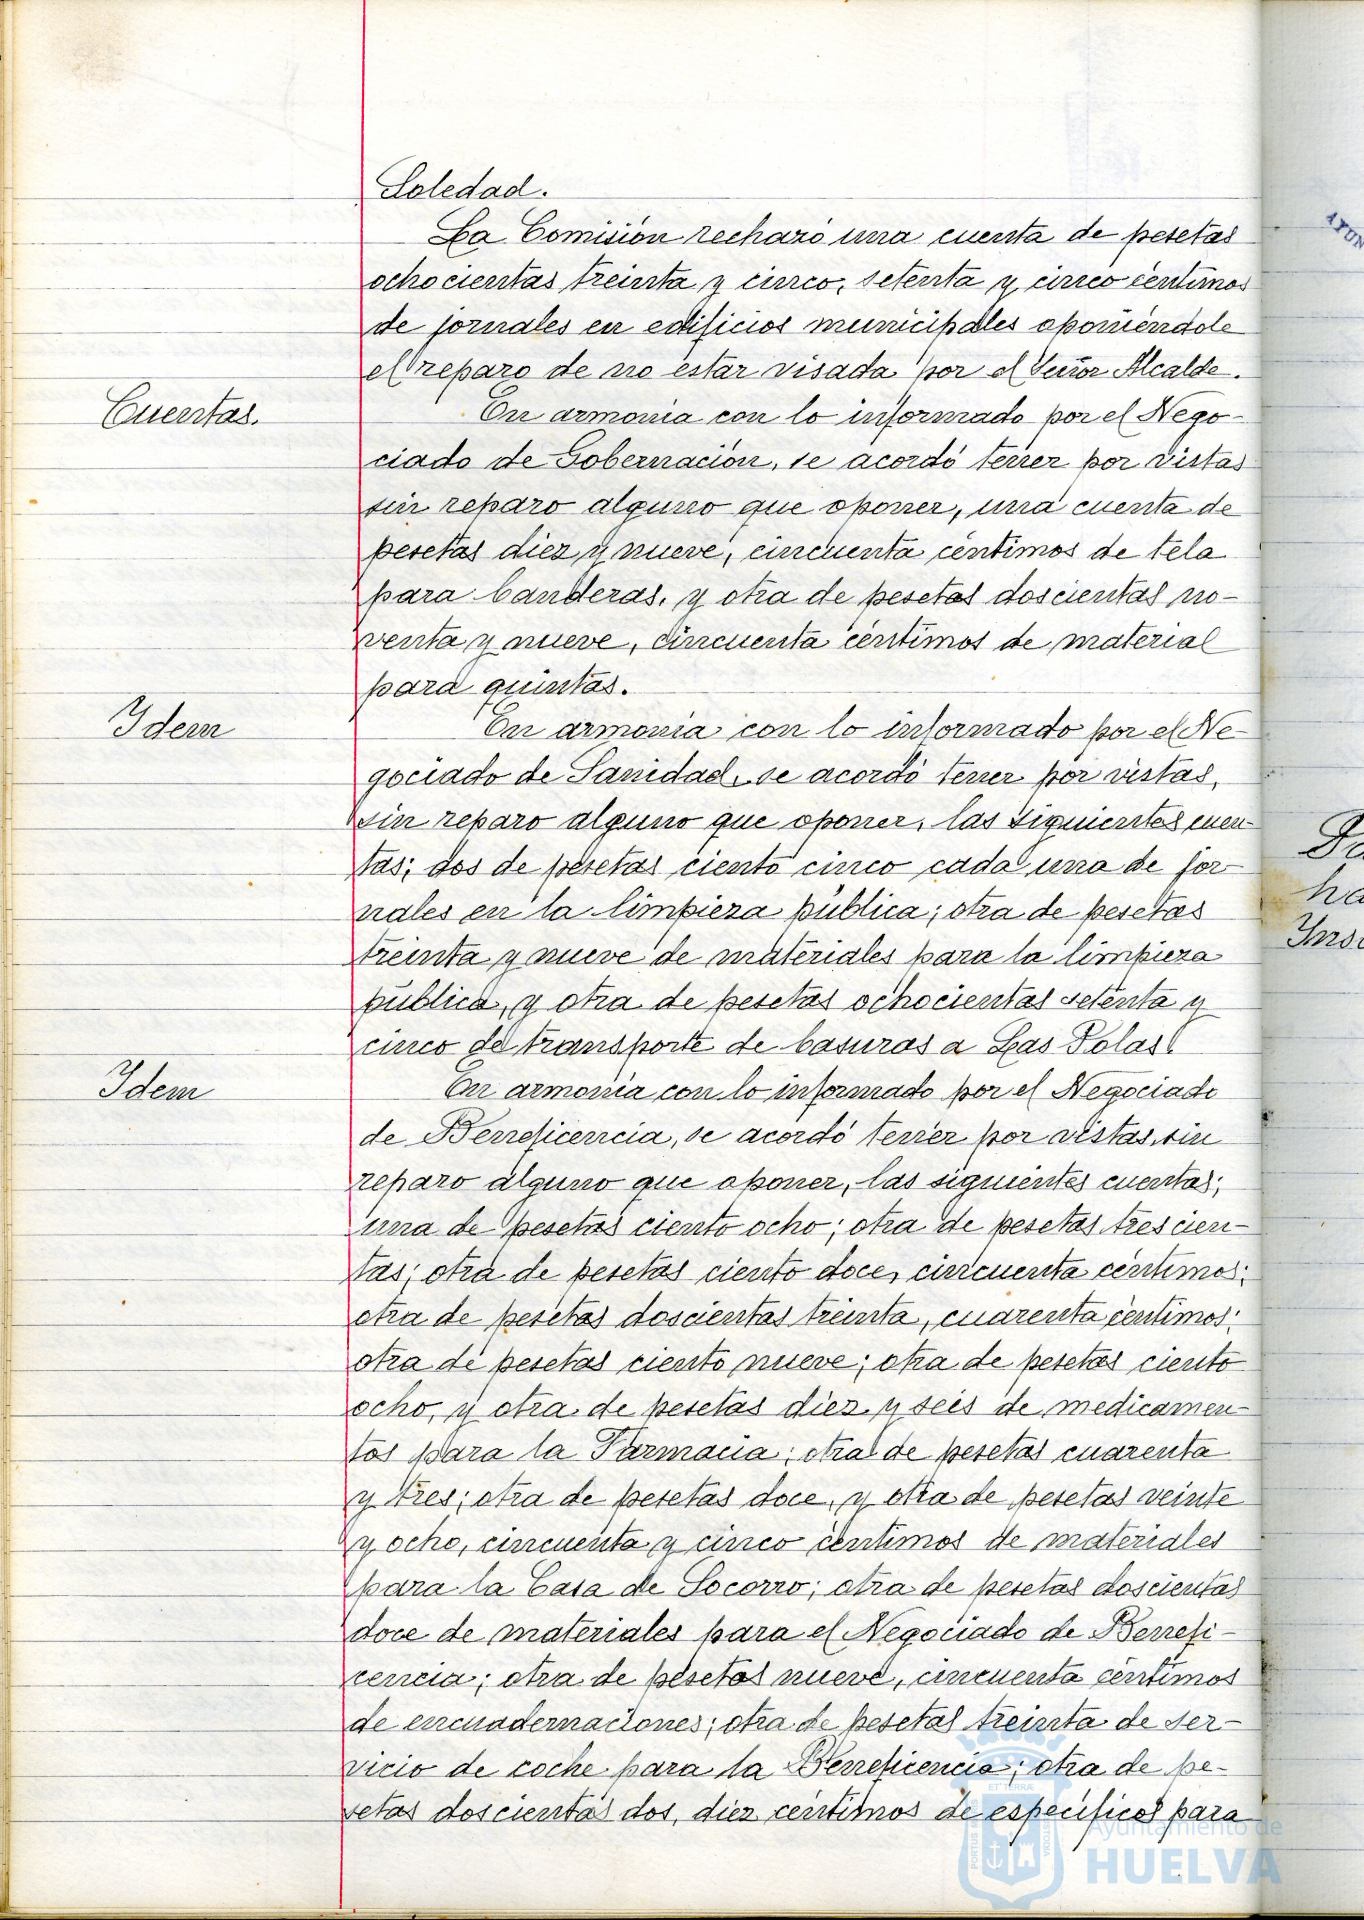 Soledad.
La Comisión rechazó una cuenta de pesetas
ochocientas treinta y cinco, setenta y cinco céntimos
de jornales en edificios municipales oponiéndole
el reparo de no estar visada por el Señor Alcalde.
Cuentas.
En armonía con lo informado por el Nego-
ciado de Gobernación, se acordó tener por vistas
sin reparo alguno que oponer, una cuenta de
pesetas diez y nueve, cincuenta céntimos de tela
para banderas, y otra de pesetas doscientas no-
venta y nueve, cincuenta céntimos de material
para quintas.
Idem
En armonía con lo informado por el Ne-
gociado de Sanidad, se acordó tener por vistas,
sin reparo alguno que oponer, las siguientes cuen-
tas; dos de pesetas ciento cinco cada una de jor-
nales en la limpieza pública; otra de pesetas
treinta y nueve de materiales para la limpieza
pública, y otra de pesetas ochocientas setenta y
cinco de transporte de basuras a Las Polas.
Idem
En armonía con lo informado por el Negociado
de Beneficencia, se acordó tener por vistas, sin
reparo alguno que oponer, las siguientes cuentas;
una de pesetas ciento ocho; otra de pesetas trescien-
tas; otra de pesetas ciento doce, cincuenta céntimos;
otra de pesetas doscientas treinta, cuarenta céntimos;
otra de pesetas ciento nueve; otra de pesetas ciento
ocho, y otra de pesetas diez y seis de medicamen-
tos para la Farmacia; otra de pesetas cuarenta
y tres; otra de pesetas doce, y otra de pesetas veinte
y ocho, cincuenta y cinco céntimos de materiales
para la Casa de Socorro; otra de pesetas doscientas
doce de materiales para el Negociado de Benefi-
cencia; otra de pesetas nueve, cincuenta céntimos
de encuadernaciones; otra de pesetas treinta de ser-
vicio de coche para la Beneficencia; otra de pe-
setas doscientas dos, diez céntimos de específicos para
Ayuntamiento de
HUELVA